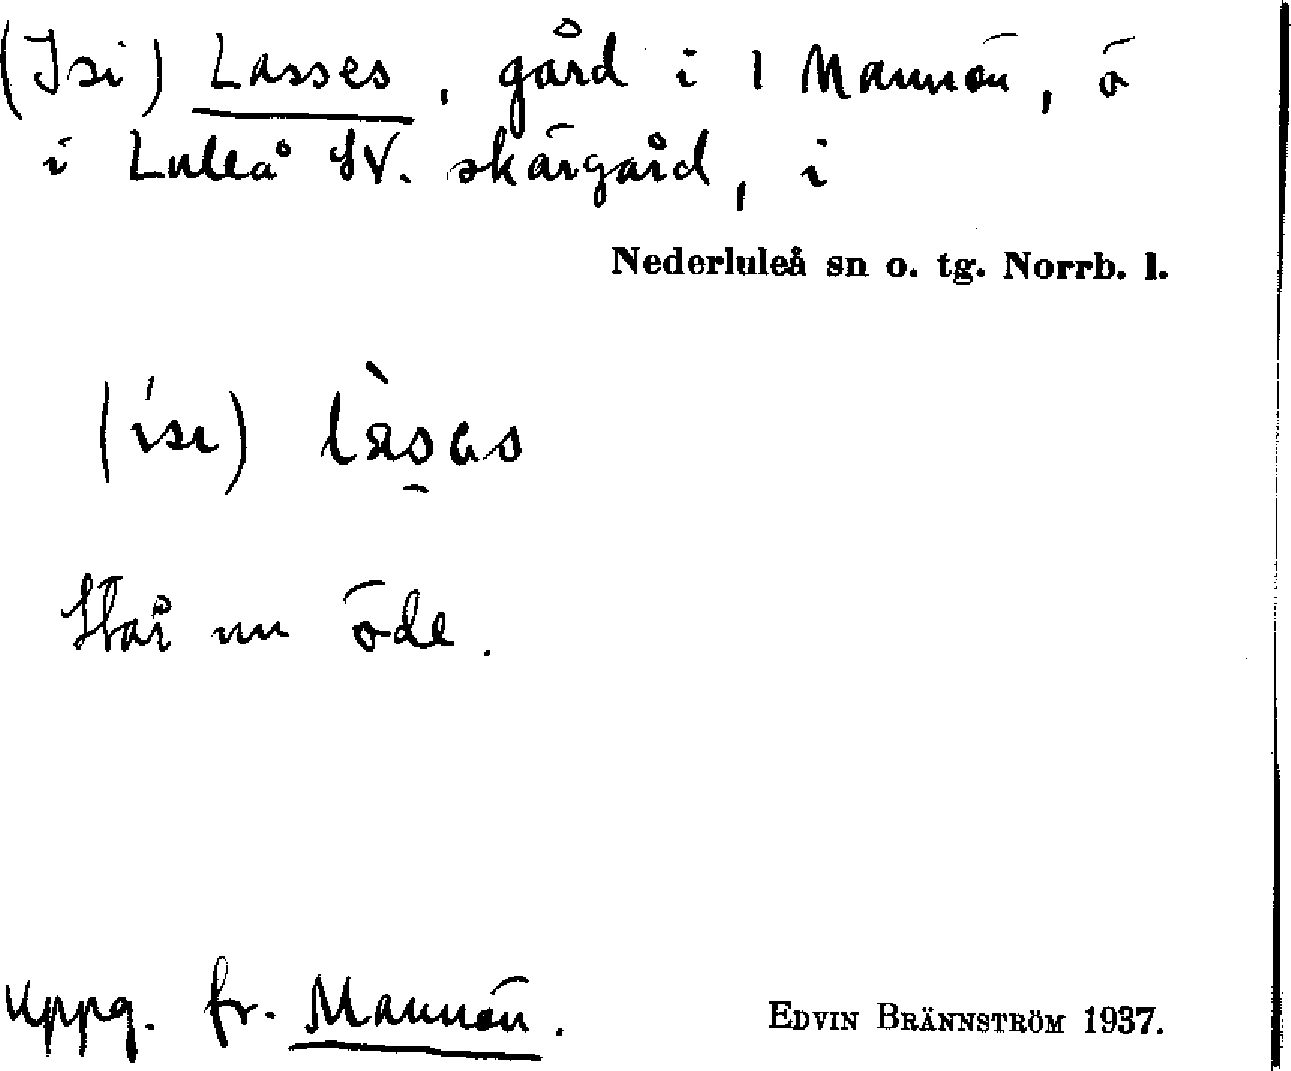 (Isi) Lasses, gård i 1 Mannön, ö
i Luleå SV. skärgård, i
Nederluleå sn o. tg. Norrb. l.
Står nu öde.
Uppg. fr. Mannön.
EDVIN BRÄNNSTRÖM 1937.